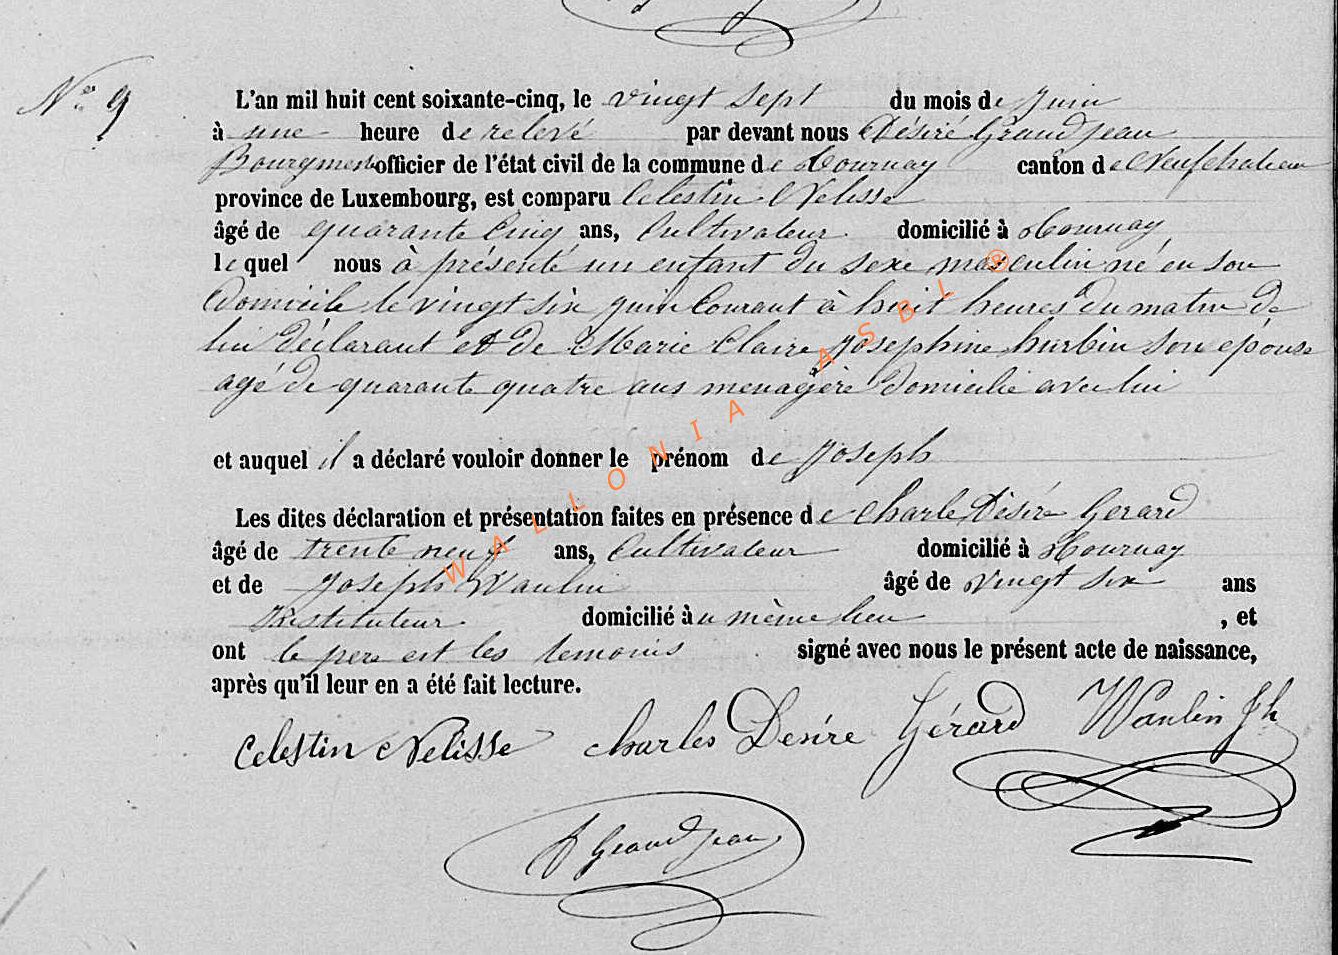 N° 9
L'an mil huit cent soixante-cinq, le vingt sept du mois de juin
à une heure de relevé par devant nous Désiré Grandjean
Bourgmest officier de l'état civil de la commune de Tournay canton de Neufchateau
province de Luxembourg, est comparu Celestin Nelisse
âgé de quarante cinq ans, Cultivateur domicilié à Tournay
lequel nous à présenté un enfant du sexe masculin né en son
domicile le vingt six juin Courant à huit heures du matin de
lui déclarant et de Marie Claire Josephine hurbin son épouse
agé de quarante quatre ans menagère domicilié avec lui
et auquel il a déclaré vouloir donner le prénom de Joseph
Les dites déclaration et présentation faites en présence de Charle Désiré Gerard
âgé de trente neuf ans, Cultivateur domicilié à Tournay
et de Joseph Waulin âgé de vingt six ans
Instituteur domicilié au même lieu , et
ont le pere est les temoins signé avec nous le présent acte de naissance,
après qu'il leur en a été fait lecture.
Celestin Nelisse charles Desíre Gérard Waulin Jh
D Grandjean
WALLONIA ASBL ®